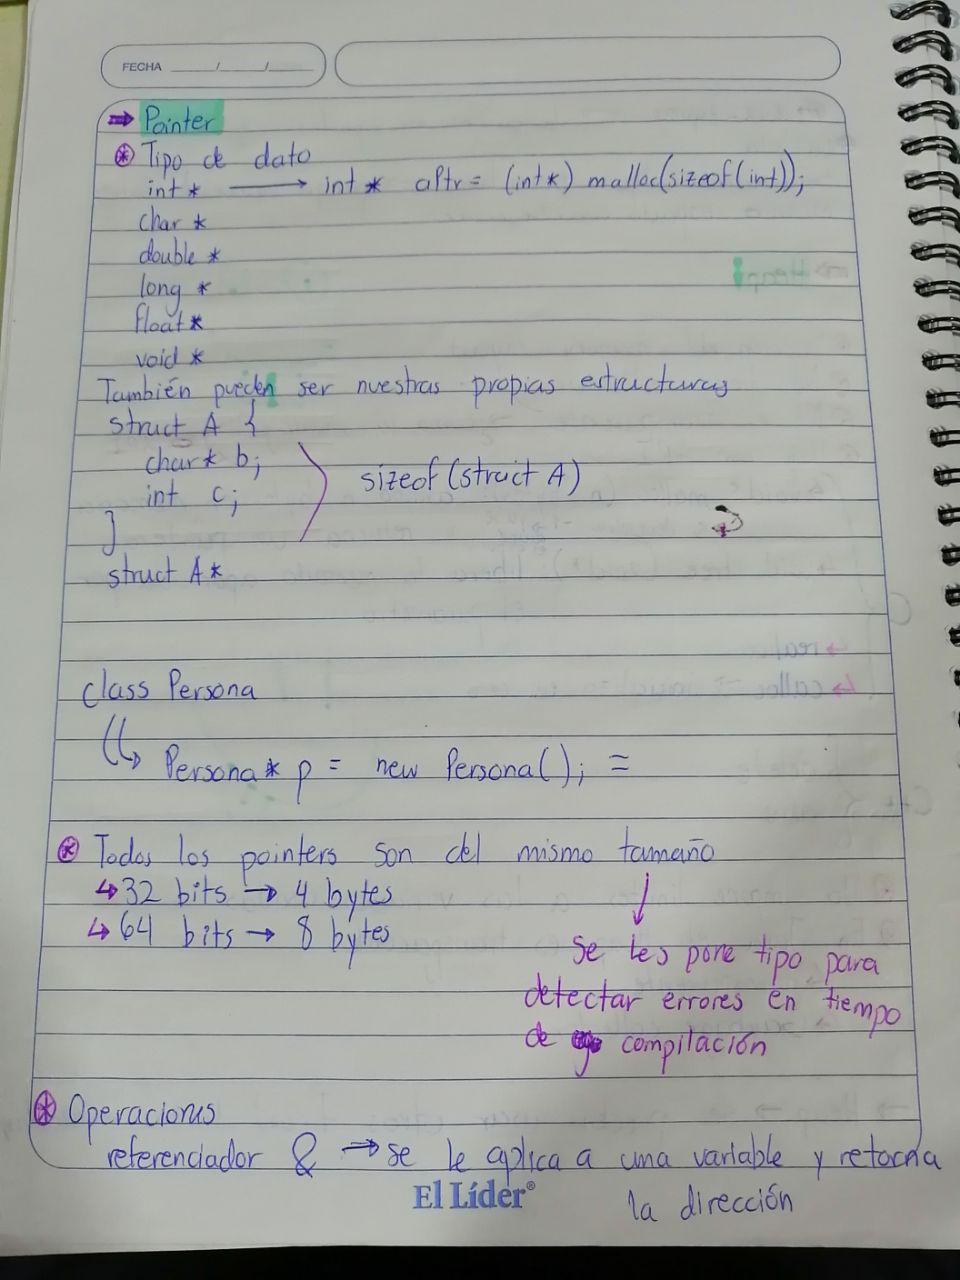 FECHA ____/____/____
⇒ Pointer
* Tipo de dato
int * → int * aPtr = (int*) malloc(sizeof(int));
char *
double *
long *
float *
void *
También pueden ser nuestras propias estructuras
struct A {
char* b;
int c;
}
sizeof(struct A)
struct A*
class Persona
↳ Persona* p = new Persona(); =
* Todos los pointers son del mismo tamaño
↳ 32 bits → 4 bytes
↳ 64 bits → 8 bytes
↓
Se les pone tipo para
detectar errores en tiempo
de compilación
* Operaciones
referenciador & → se le aplica a una variable y retorna
la dirección
El Líder®